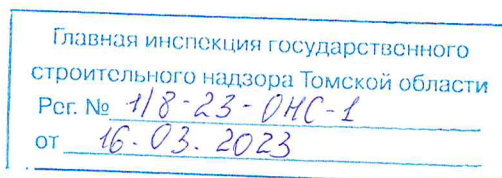 Главная инспекция государственного
строительного надзора Томской области
Рег. № 1/8-23-ОНС-1
от 16.03.2023